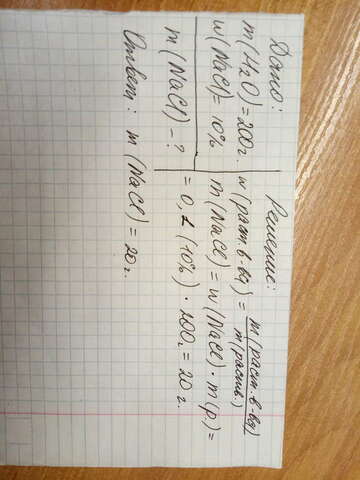 Дано:
m(H2O)=200г.
w(NaCl)=10%
m(NaCl)-?
Решение:
w(раст.в-ва)= m(раст.в-ва)/m(раств.)
m(NaCl)=w(NaCl)·m(р.)=
=0,1(10%)·200г=20г.
Ответ: m(NaCl)=20г.